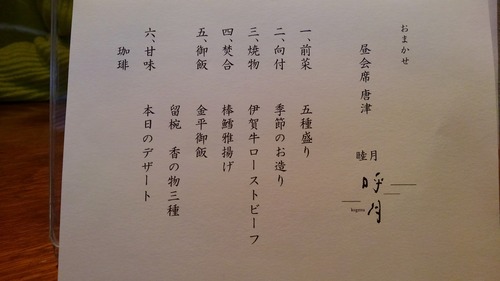 おまかせ
昼会席 唐津
睦月
呼月
kogetu
一、前菜 五種盛り
二、向付 季節のお造り
三、焼物 伊賀牛ローストビーフ
四、焚合 棒鱈雅揚げ
五、御飯 金平御飯
留椀 香の物三種
六、甘味 本日のデザート
珈琲